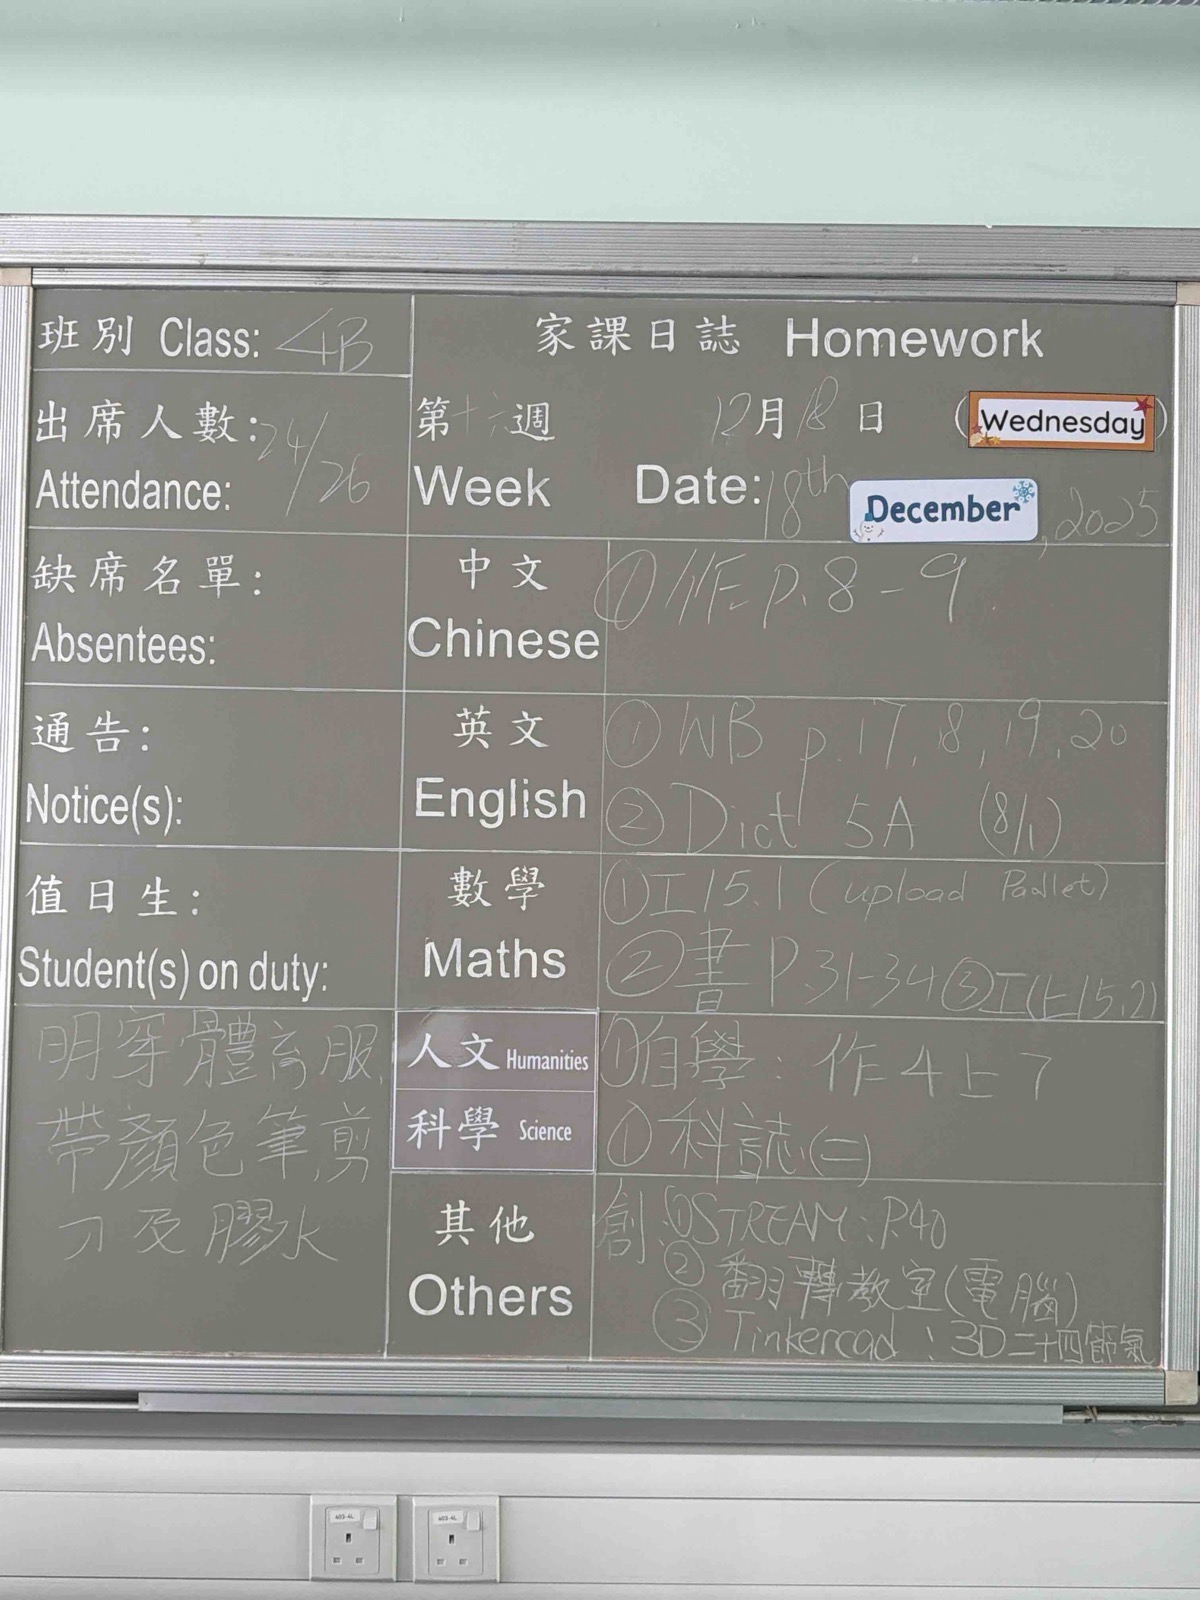 班別 Class: 4B
家課日誌 Homework
出席人數: 24/26
Attendance:
第十六週 12月18日 (Wednesday)
Week Date: 18th December, 2025
缺席名單:
Absentees:
中文 ①作 P.8-9
Chinese
通告:
Notice(s):
英文 ① WB p.17, 18, 19, 20
English ② Dict 5A (8/1)
值日生:
Student(s) on duty:
數學 ①工15.1 (upload Padlet)
Maths ②書 P.31-34 ③工(上15.2)
明穿體育服,
帶顏色筆,剪
刀及膠水
人文 Humanities ①自學: 作4上7
科學 Science ①科誌(二)
其他 創:①STREAM: P.40
Others ②翻轉教室(電腦)
③Tinkercad: 3D二十四節氣
403-4L
403-4L